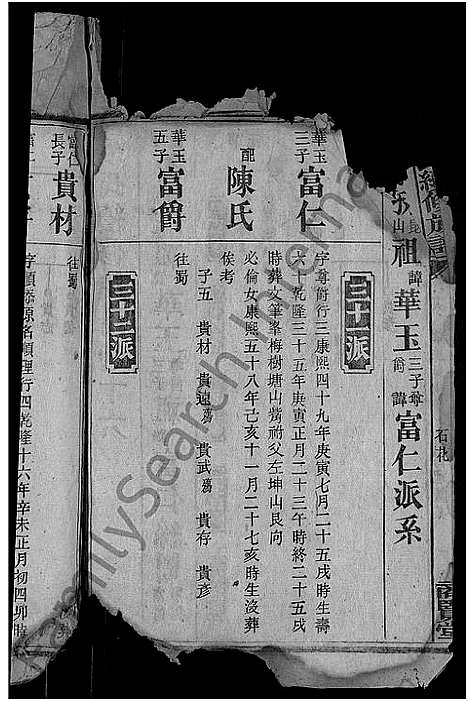 續修族譜
山祖諱華玉三子尊爵諱富仁派系
三十一派
華玉三子 富仁
字尊爵行三康熙四十九年庚寅七月二十五戌時生壽
六十乾隆三十五年庚寅正月二十三午時終二十五戌
時葬文筆峯梅樹塘山祔父左坤山艮向
配 陳氏
必倫女康熙五十八年己亥十一月二十七亥時生沒葬
俟考
子五 貴材 貴遠 貴武 貴存 貴彥
華玉五子 富爵
往蜀
三十二派
富仁長子 貴材
往蜀
理行四乾隆十六年辛未正月初四卯時
FamilySearch International